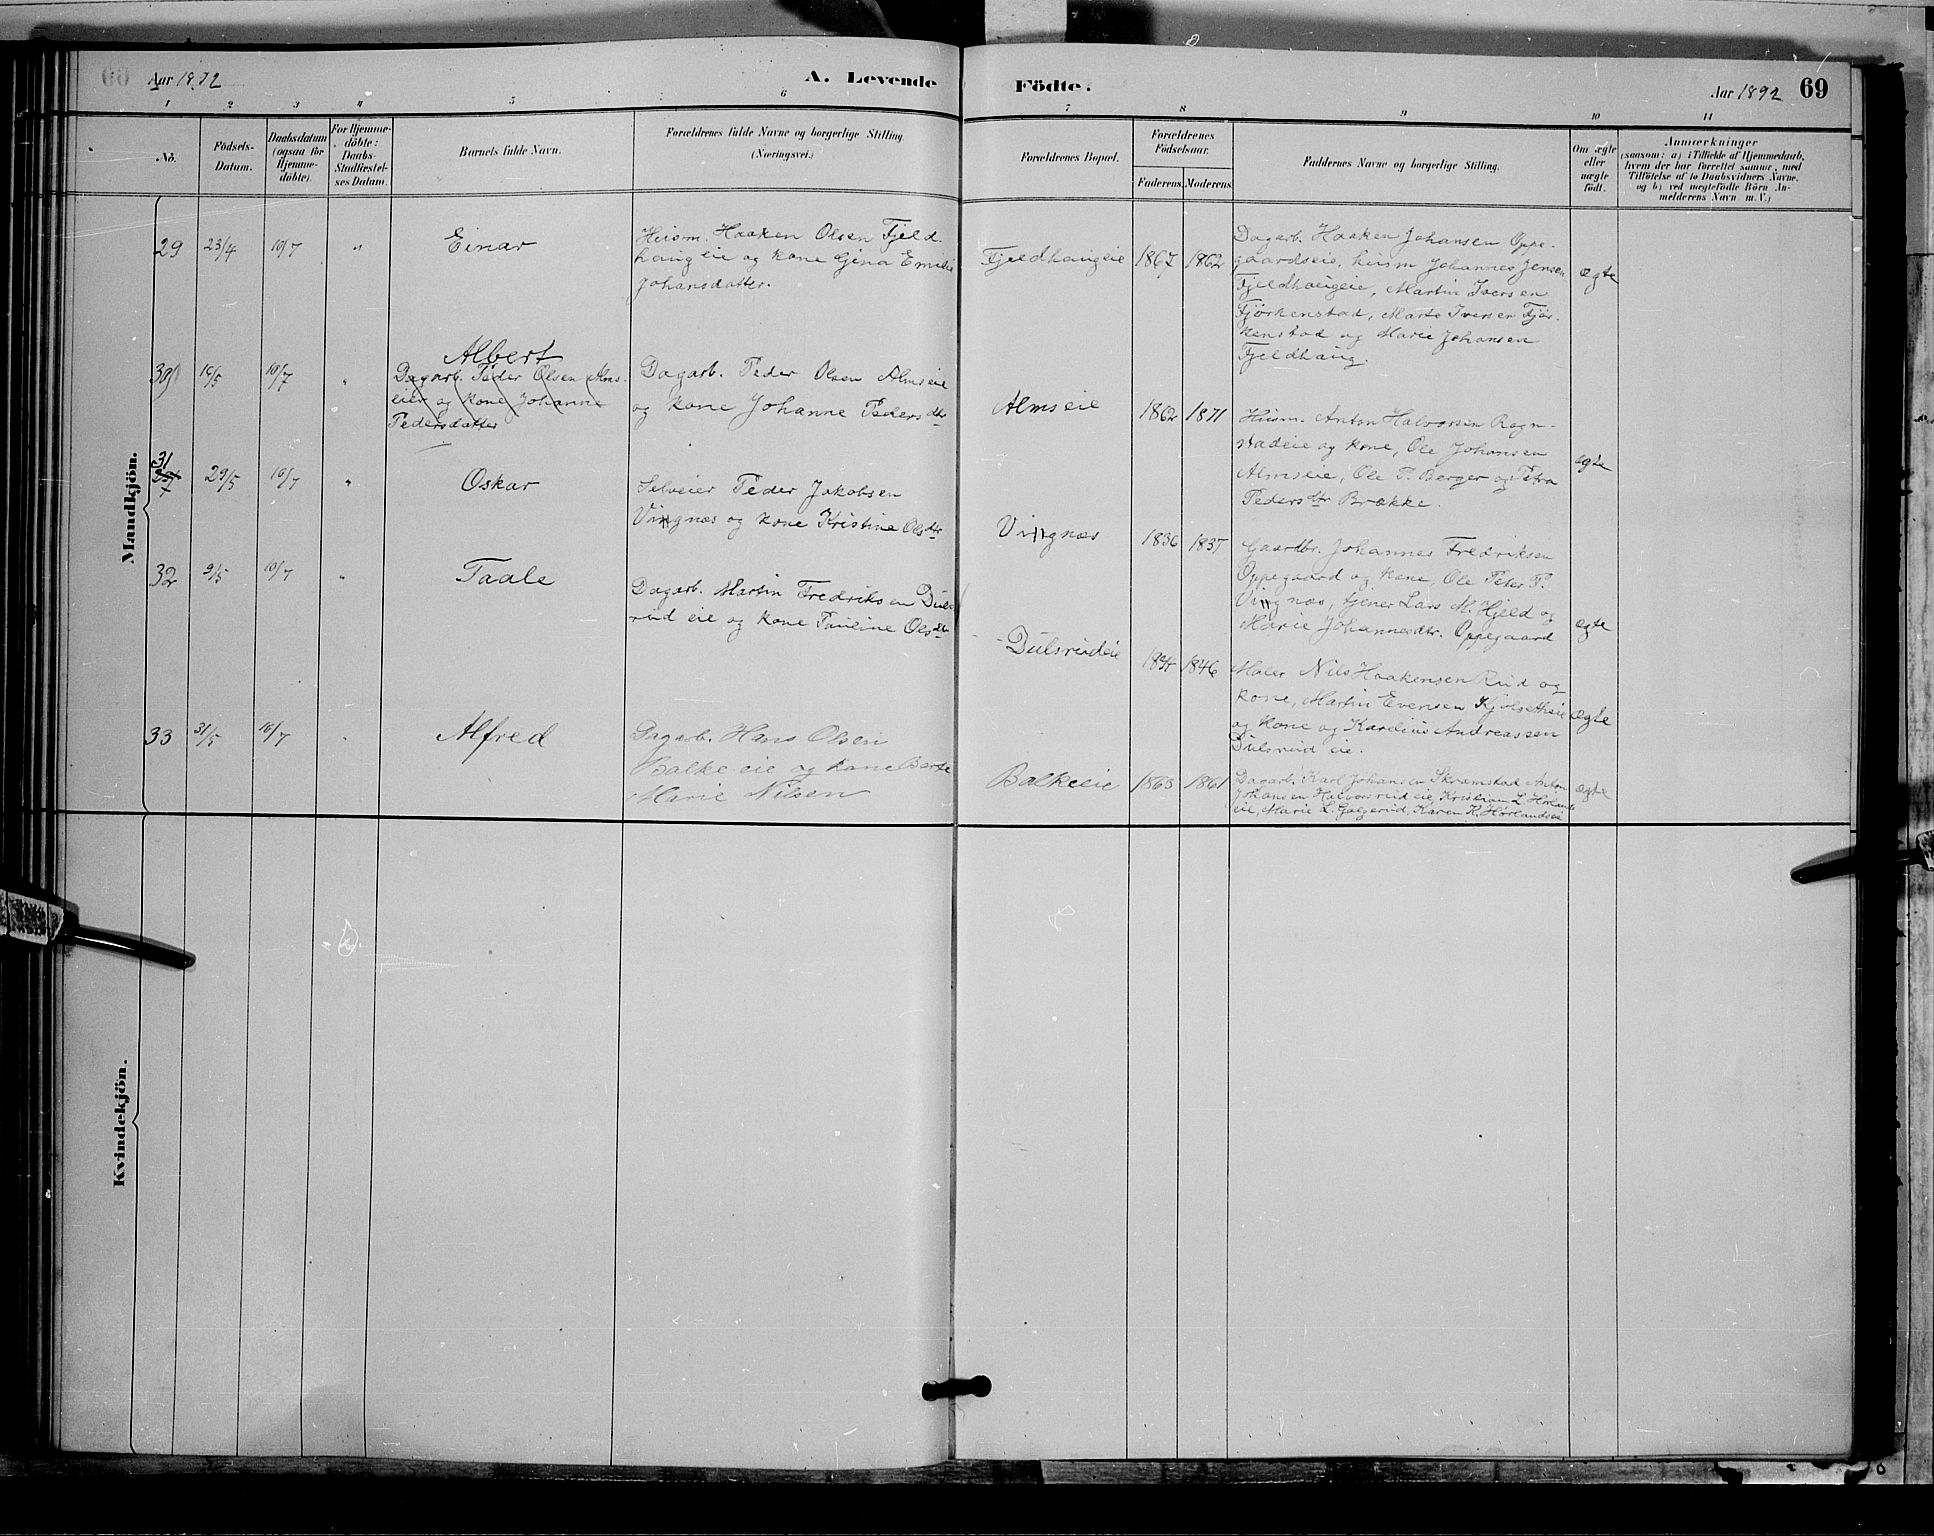 Aar 1892
A. Levende
Födte.
Aar 1892
69
1 2 3 4 5 6 7 8 9 10 11
No.
Födsels-
Datum.
Daabsdatum
(ogsaa for
Hjemme-
döbte).
For Hjemme-
döbte:
Daabs-
Stadfæstel-
ses Datum.
Barnets fulde Navn.
Forældrenes fulde Navne og borgerlige Stilling.
(Næringsvei.)
Forældrenes Bopæl.
Forældrenes
Födselsaar.
Faderens
Moderens
Faddernes Navne og borgerlige Stilling.
Om ægte
eller
uægte
födt.
Anmærkninger
(saasom: a) i Tilfælde af Hjemmedaab,
hvem der har forrettet samme, med
Tilföielse af to Daabsvidners Navne,
og b) ved uægtefödte Börn An-
melderens Navn m. V.)
Mandkjön.
29 23/4 10/7 "
Einar
Husm. Haaken Olsen Fjeld.
haugeie og kone Gina Emilie
Johansdatter.
Fjeldhaugeie 1867 1862
Dagarb. Haaken Johansen Oppe-
gaardseie, husm Johannes Jensen
Fjeldhaugeie, Martin Iversen
Fjörkenstad, Marte Iversen Fjör-
kenstad og Marie Johansen
Fjeldhaug.
ægte
30 10/5 10/7 "
Albert
Dagarb. Peder Olsen Alms-
eie og kone Johanne
Pedersdatter
Dagarb. Peder Olsen Almseie
og kone Johanne Pedersdtr
Almseie 1862 1871
Husm. Anton Halvorsen Rogn-
stadeie og kone, Ole Johansen
Almseie, Ole P. Berger og Petra
Pedersdtr Brække.
ægte
31 29/5 10/7 "
Oskar
Selveier Peder Jakobsen
Vingnæs og kone Kristine Olsdtr
Vingnæs 1836 1837
Gaardbr. Johannes Fredriksen
Oppegaard og kone, Ole Peter P.
Vingnæs, tjener Lars M. Hjeld og
Marie Johannesdtr. Oppegaard
ægte
32 9/5 10/7 "
Taale
Dagarb. Martin Fredriksen Duls-
rud eie og kone Pauline Olsdtr
Dulsrudeie 1846
Maler Nils Haakensen Rud og
kone, Martin Evensen Kjölsetheie
og kone og Karelius Andreassen
Dulsrud eie.
ægte
33 31/5 10/7 "
Alfred
Dagarb. Hans Olsen
Balke eie og kone Berte
Marie Nilsen
Balkeeie 1863 1861
Dagarb. Karl Johansen Skramstad Anton
Johansen Halvorsrud eie, Kristian L. Hørlands
eie, Marie L. Galgerud, Karen K. Hørlandseie
ægte
Kvindekjön.